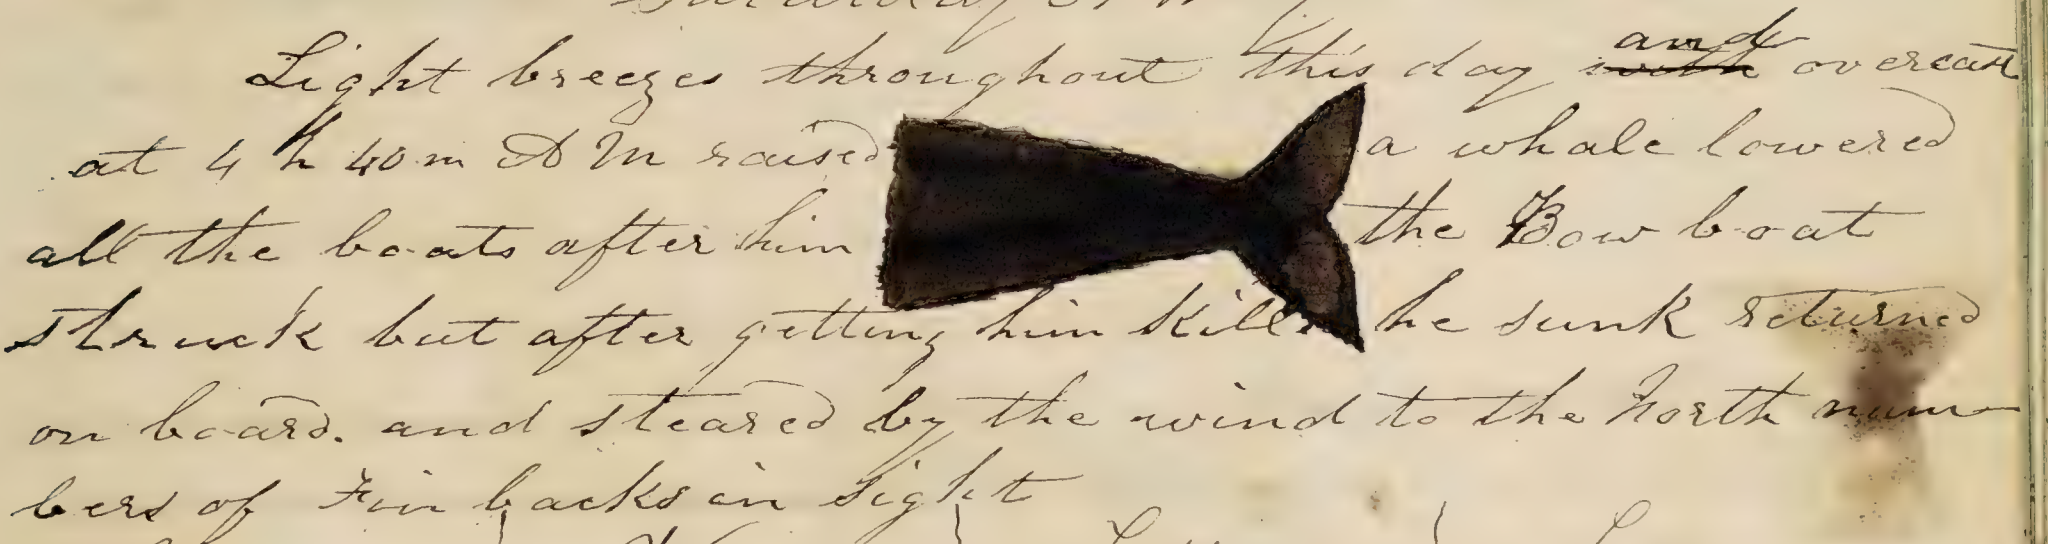 Light breezes throughout this day and with overcast
at 4 h 40 m A M raised a whale lowered
all the boats after him the Bow boat
struck but after getting him kill he sunk returned
on board. and steared by the wind to the North num
bers of Finbacks in sight